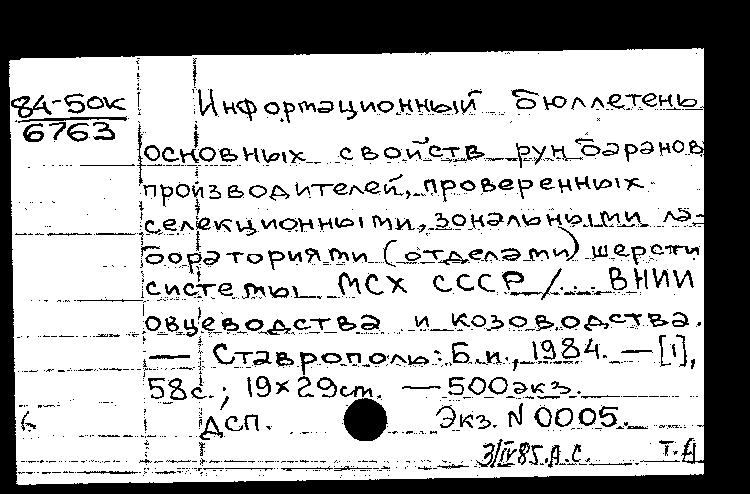 84-50к
6763
Информационный бюллетень
основных свойств рун баранов
производителей, проверенных
селекционными, зональными ла-
бораториями (отделами) шерсти
системы МСХ СССР /... ВНИИ
овцеводства и козоводства.
— Ставрополь: Б.и., 1984. — [1],
58с.; 19×29см. — 500экз.
ДСП. Экз. N 0005.
3/IV85.А.С. Т.А